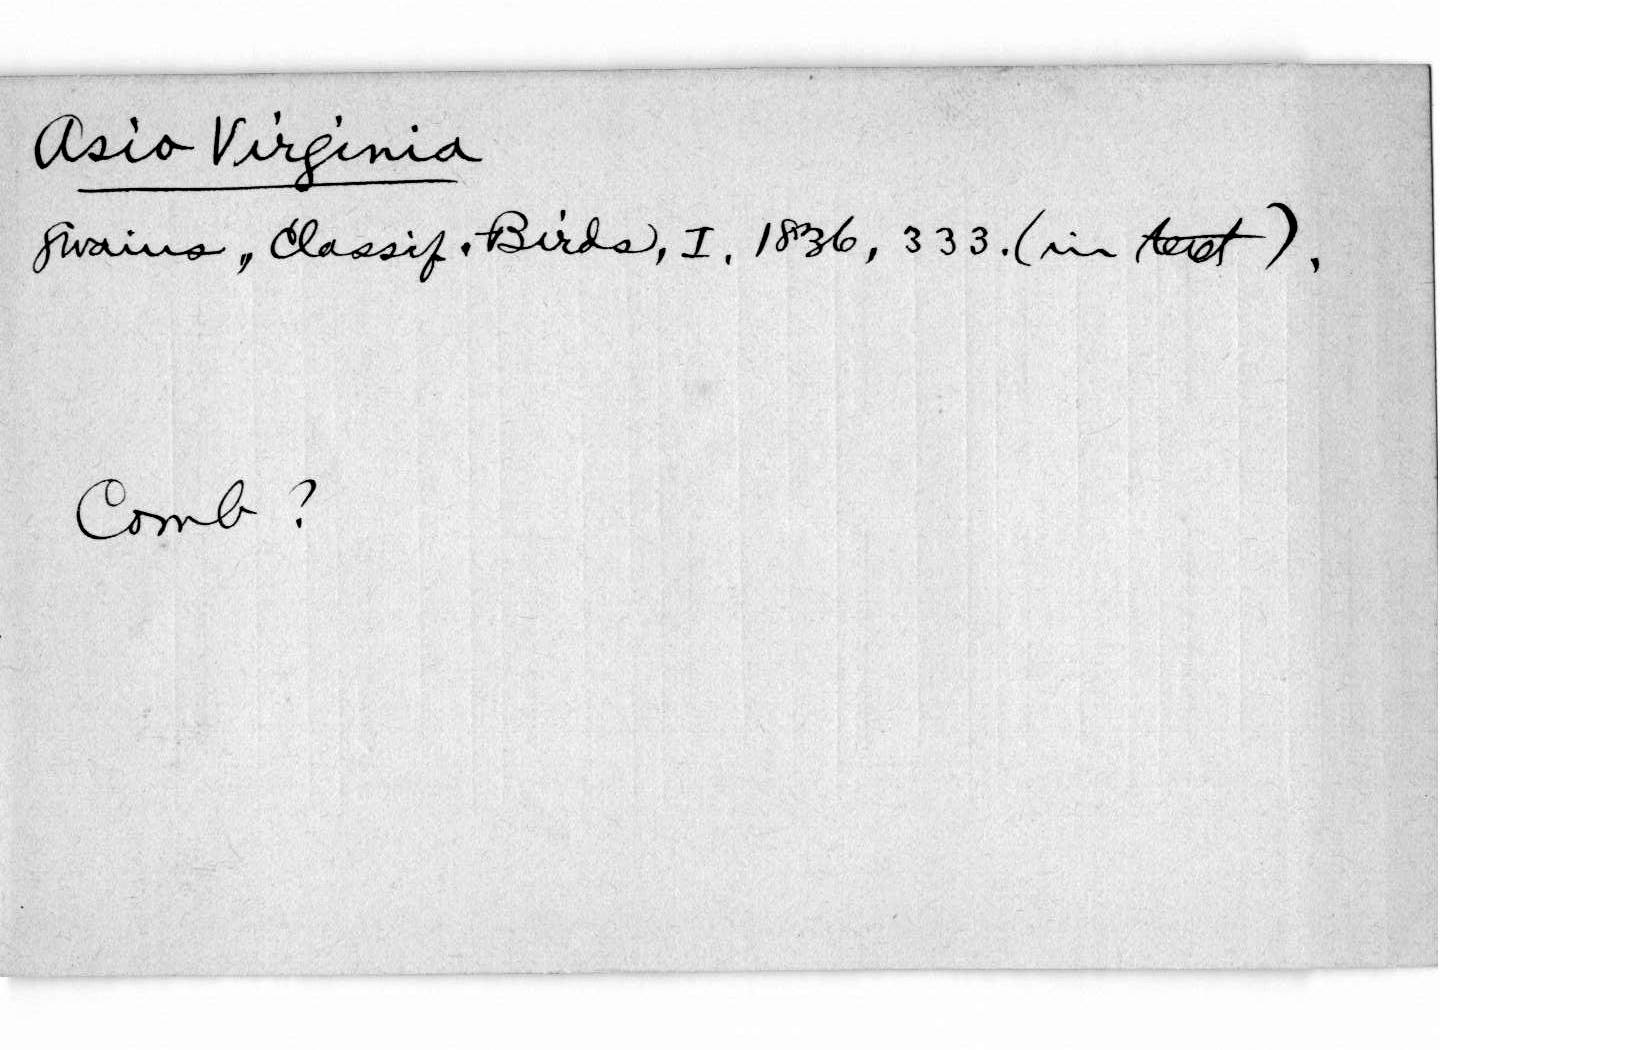 Asio Virginia
Swains., Classif. Birds, I, 1836, 333. (in text).
Comb ?